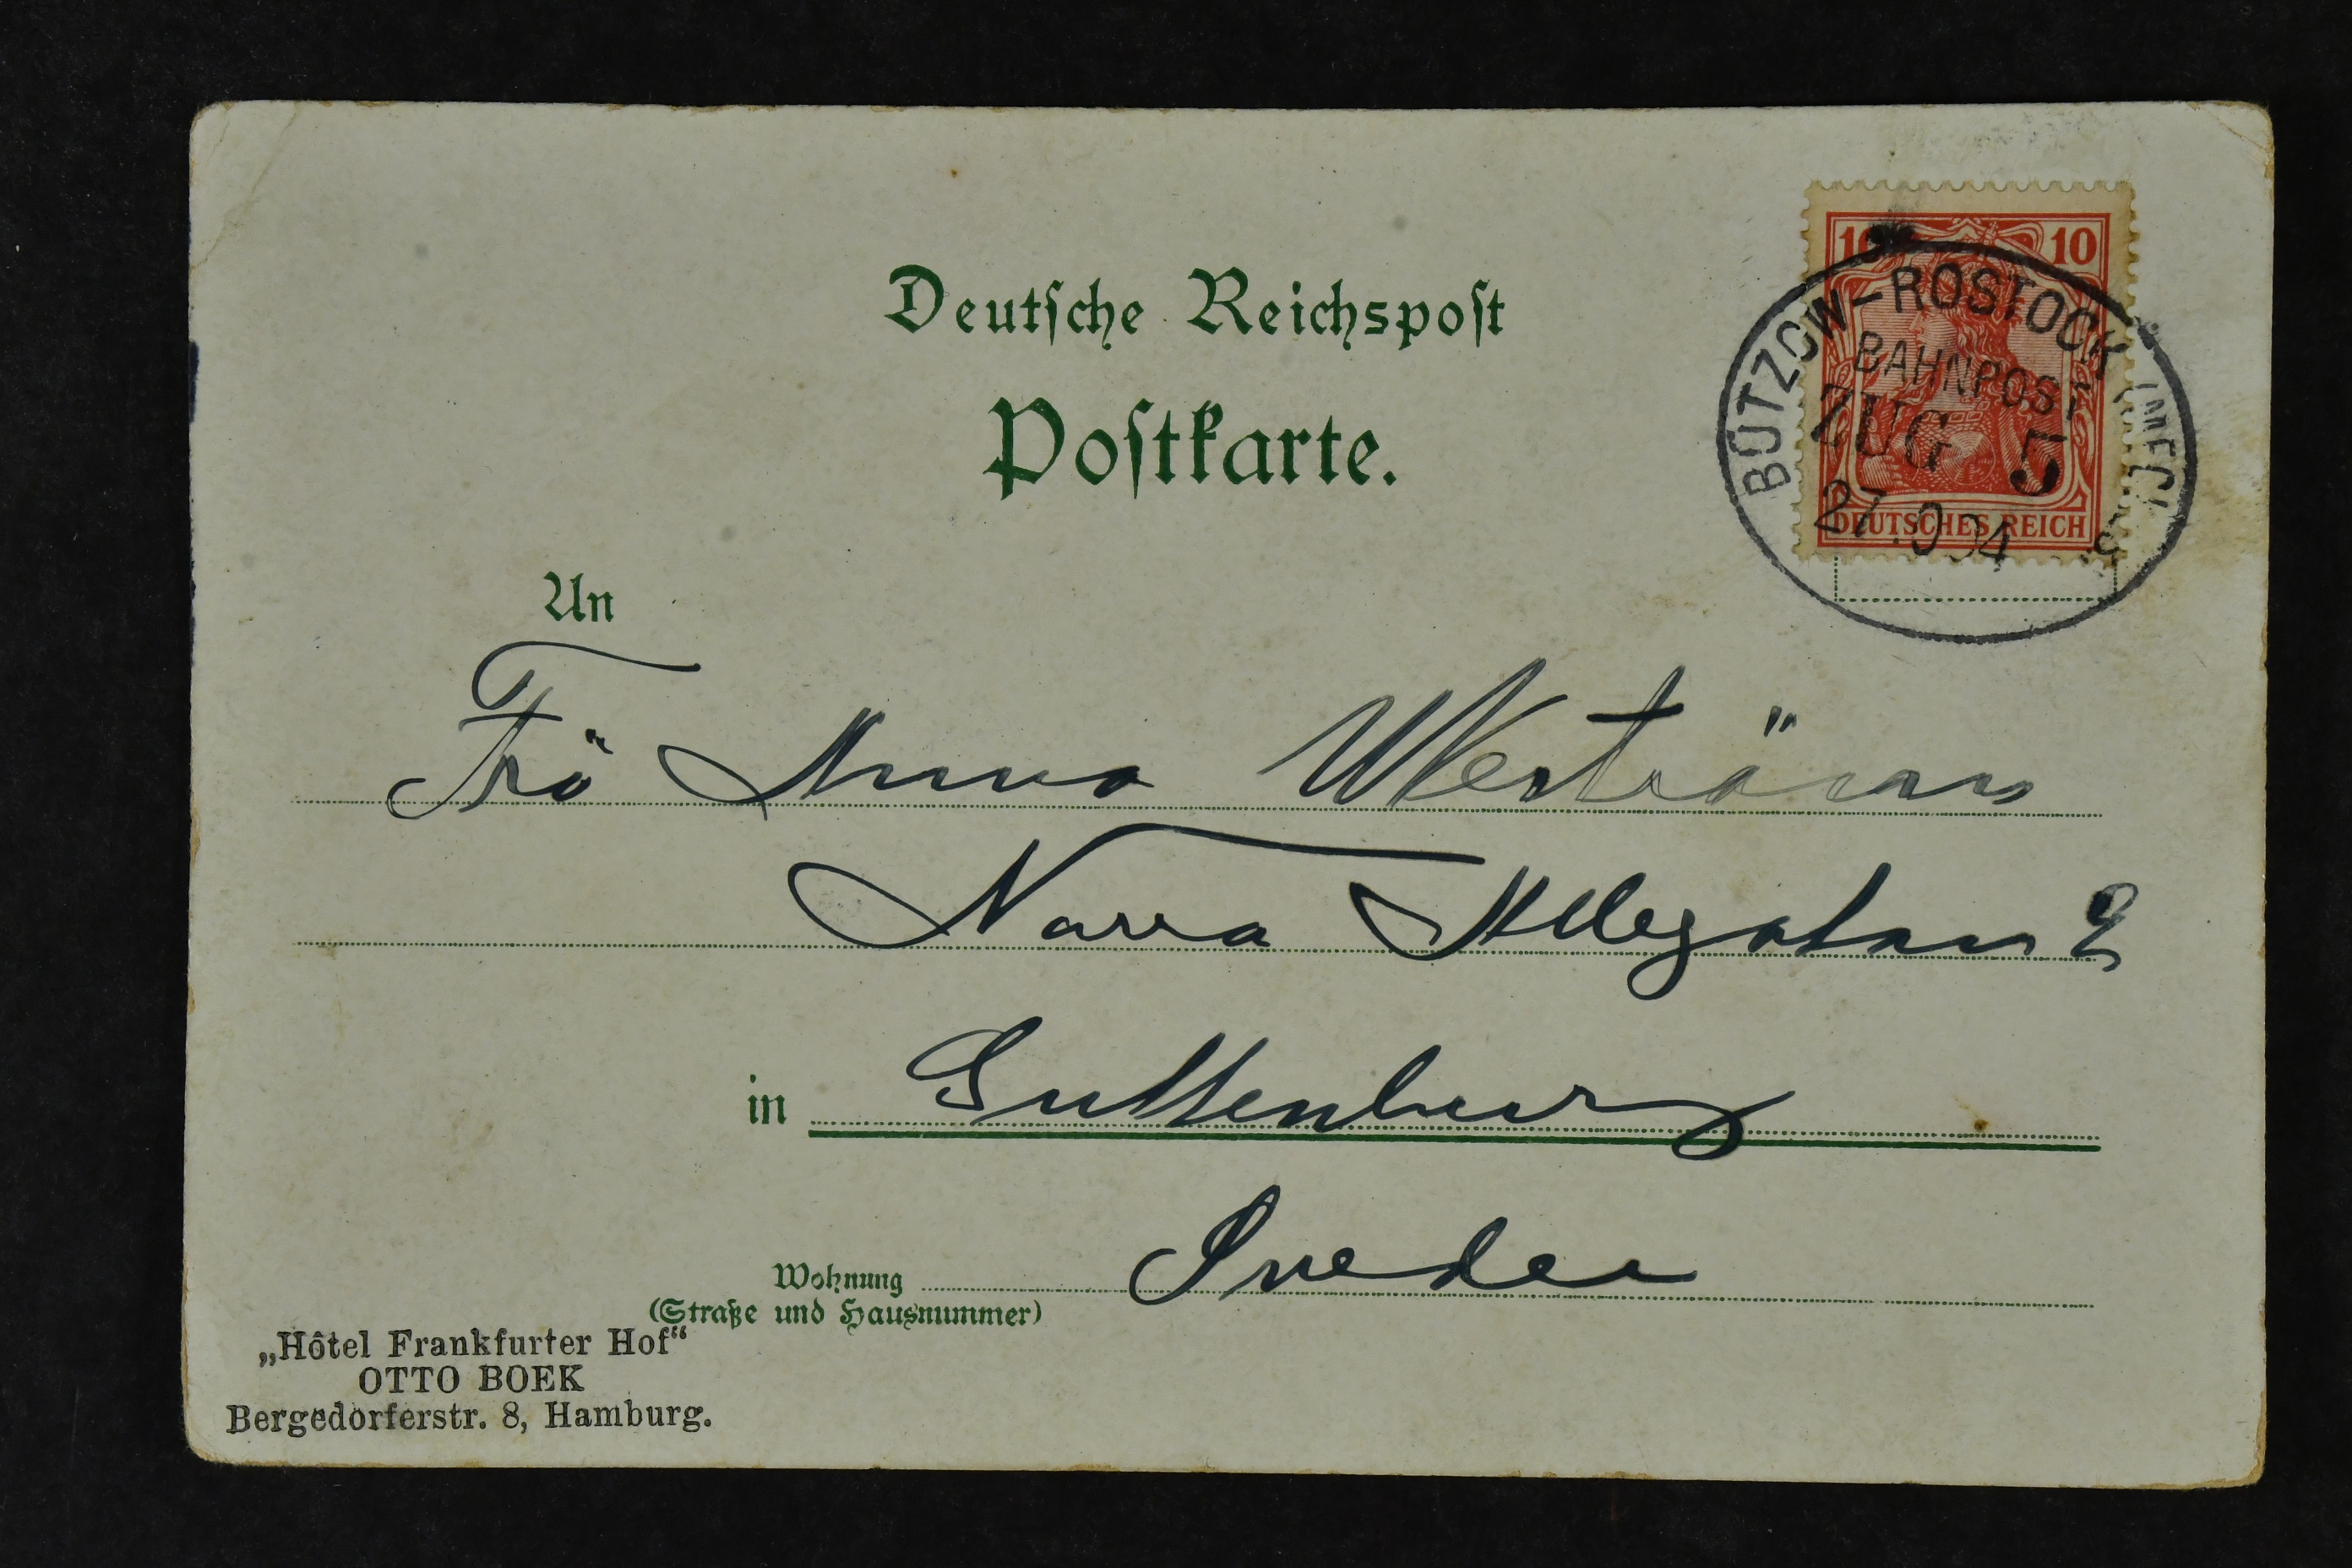 Deutsche Reichspost
Postkarte.
10 10
DEUTSCHES REICH
BÜTZOW-ROSTOCK (MECK
BAHNPOST
ZUG 5
An
Frö Anna
Norra Allegatan 2
in Guttenburg
Wohnung Sveden
(Straße und Hausnummer)
„Hôtel Frankfurter Hof“
OTTO BOEK
Bergedorferstr. 8, Hamburg.